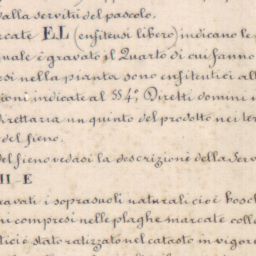 dalla servitù del pascolo.
rcate EL (enfiteusi libere) indicano le
uale è gravato il Quarto di cui fanno
esi nella pianta sono enfiteutici all
ioni indicate al §§ 4°, Diretti domini
direttaria un quinto del prodotto nei ter
del fieno.
del fieno vedasi la descrizione della Serv
H-E
cavati i soprasuoli naturali cioè bosch
ni compresi nelle plaghe marcate coll
tici è stato ratizzato nel catasto in vigore